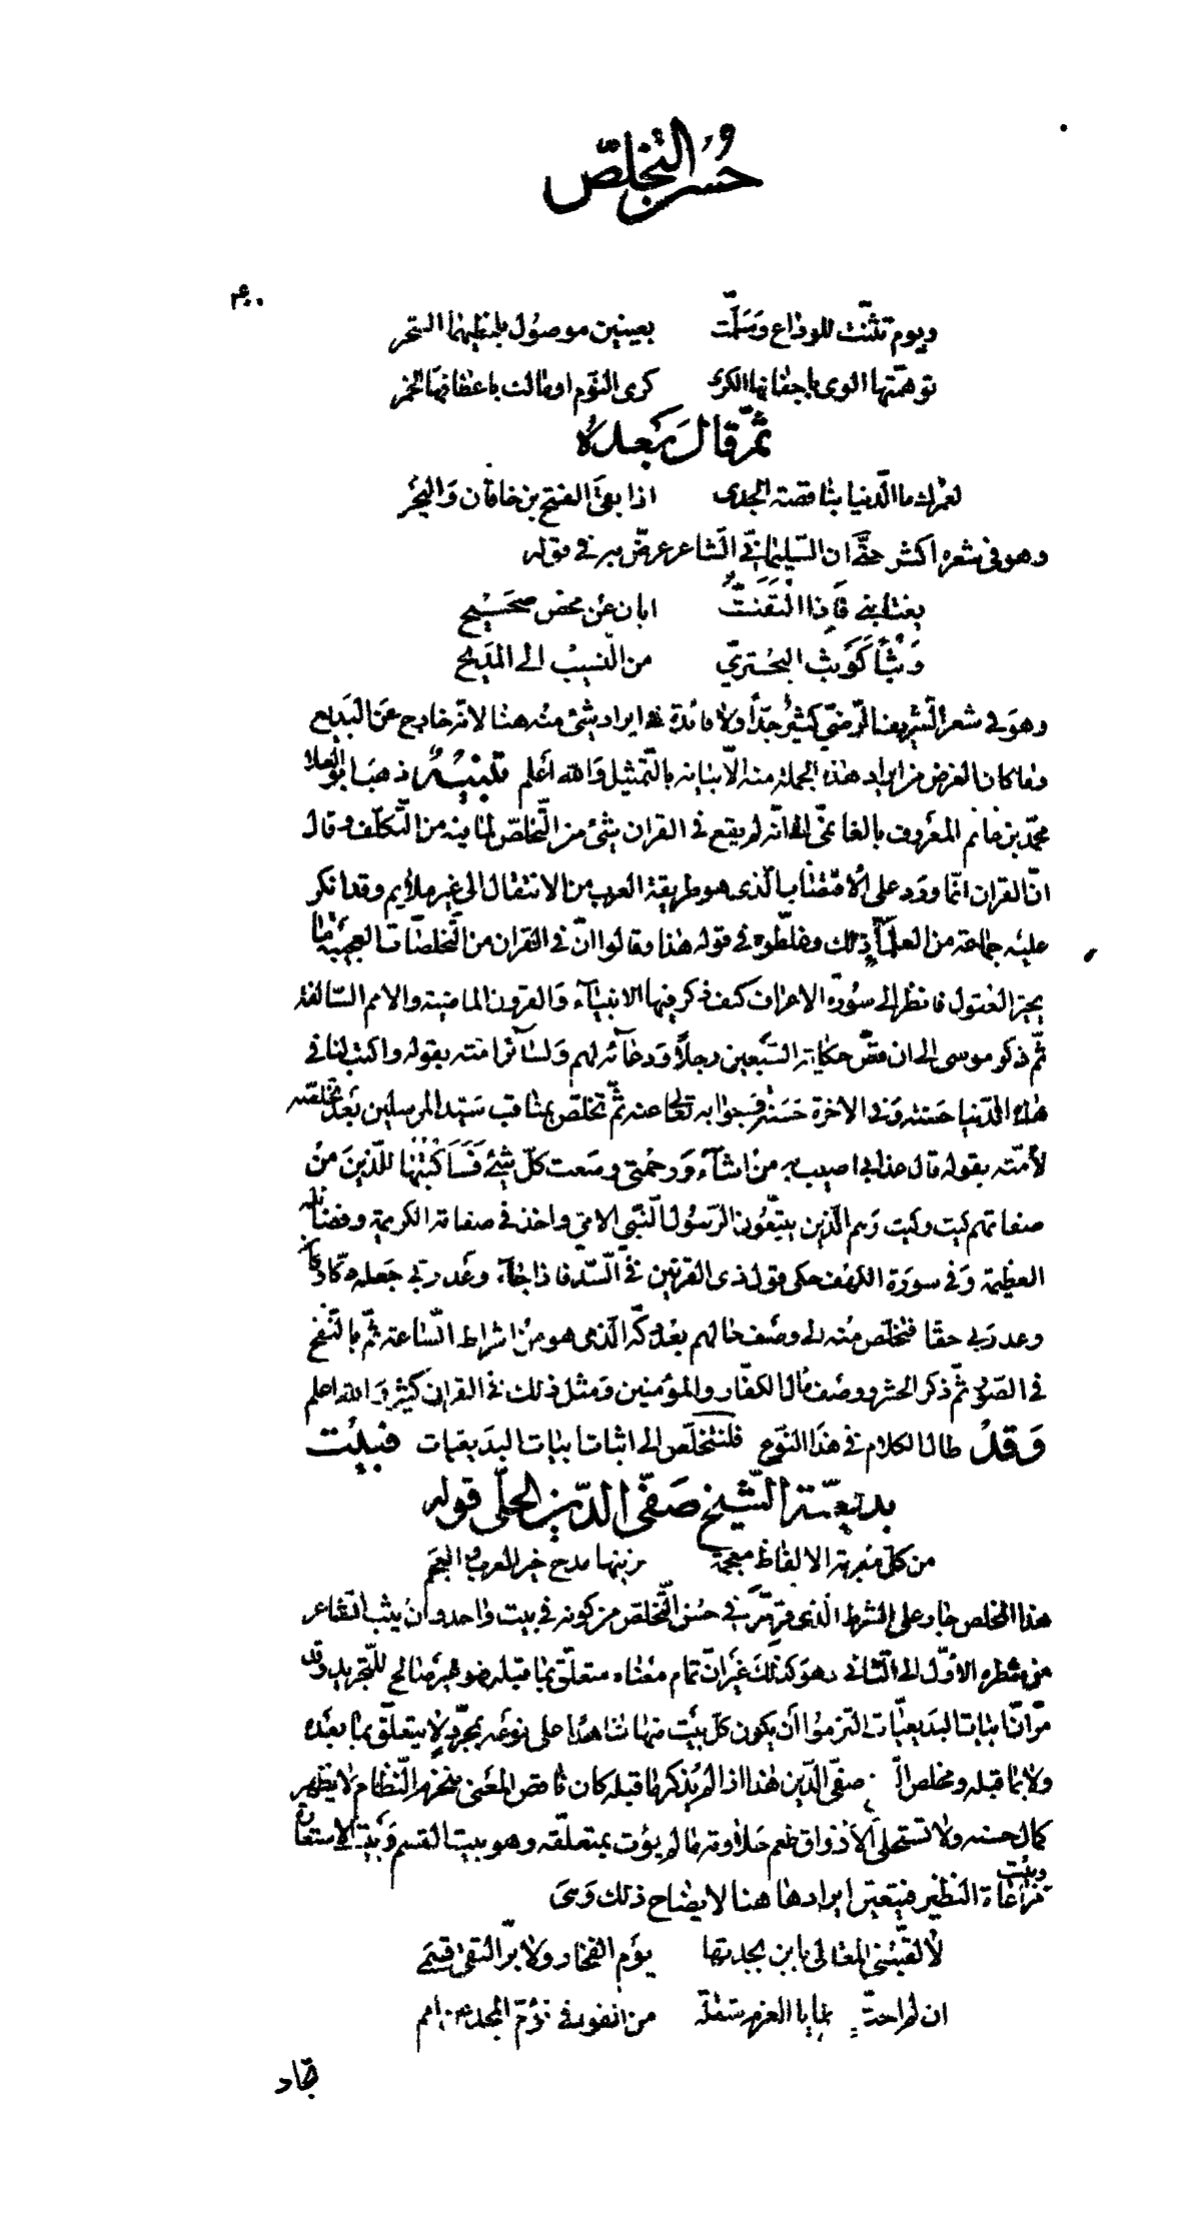 حُسن التخلّص
٤٠٠
ويوم تثنّت للوداع وسَلَّمت بعينين موصُول بلحظهما السّحر
توهمّتها الوى باجفانها الكرى كرى النوم او مالت باعطافها الخمر
ثمّ قالَ بَعدهُ
لعمرك ما الدّنيا بناقصة الجدى اذا بقى الفتح بن خاقان وَالبحر
وهو فى شعره اكثر حتّى ان السّليمانىّ الشاعر عرّض به فى قوله
يغتابنى فَاِذا الْتقَتُّ ابان عن محض صَحيح
وَثْباً كَوَثْب البُحتريّ من النّسيبْ الى المَديح
وهوَ فى شعر الشّريف الرّضىّ كثيرٌ جدّاً ولا فائدة فى ايراد شئ منه هنا لانّه خارج عن البَديع
وما كان الغرض من ايراد هذه الجملة منه الّا بيانه بالتّمثيل وَالله اَعلم تنبيهٌ ذهب ابو العلاء
محمّد بن غانم المعَروف بالغانمىّ الى انّه لم يقع فى القران شئ من التّخلّص لما فيه من التّكلّف وقال
انّ القران انّما وَرد على الاقتضاب الّذى هو طريقة العرب من الانتقال الى غير ملايم وقد انكر
عليه جماعة من العلمآء ذلك وغلّطوه فى قوله هذا وقالوا انّ فى القران من التّخلصّات العجيبة ما
يحيّر العُقول فانظر الى سُورة الاعراف كيف ذكر فيها الانبيآء وَالقرون الماضية والامم السّالفة
ثمّ ذكر موسى الى ان قصّ حكاية السّبعين رجلاً وَدعآئه لهم وَلسآئر امّته بقوله واكتب لنا فى
هذه الدّنيا حَسنة وَفى الاخرة حَسنة وَجوابه تعالى عنه ثمّ تخلّص بمناقب سَيّد المرسلين بَعد تخلّصه
لاُمّته بقوله قال عذابى اصيب به من اشآء وَرحمتى وسَعت كلّ شئ فَسَاَكْتُبُها للّذينَ منْ
صفاتهم كيت وكيت وَهم الّذين يتبّعُون الرّسولَ النّبى الامىّ واخذ فى صفاته الكريمة وفضائله
العظيمة وَفى سورَة الكهف حكى قول ذى القرنين فى السّد فاذا جآء وعَد ربى جَعله دكّا وكان
وعد رَبى حقا فتخلّص منه الى وصَف حالهم بعْد دكّه الّذى هو من اشراط السّاعة ثمّ بالنّفخ
فى الصّور ثمّ ذكر الحشر ووصَف مآل الكفّار والمؤمنين وَمثل ذلك فى القران كثير وَالله اعلم
وَقدْ طال الكلام فى هذا النّوَع فلنتخلّص الى اثبات ابيات البديعيات فبيْت
بديعيّة الشّيخ صَفىّ الدّين الحلّى قوله
من كلّ معربة الالفاظ معجمة يزينها مدح خير العرب والعجم
هذا المخلص جار على الشرط الّذى قرّرته فى حسن التّخلّص من كونه فى بيت واحد وانْ يثب الشاعر
من شطره الاوّل الى الثّانى وهو كذلكَ غيَر انّ تمام مَعْناه متعلّق بما قبله فهو غير صَالح للتّجريد وقد
مرّ انّ ابيات البديعيّات التزمُوا أن يكون كلّ بيْت منها شاهدا على نوعه بمجرّده لا يتعلّق بما بعده
ولا بما قبله ومخلص الـ صفىّ الدّين هذا اذا لم يُذكر ما قبله كان ناقص المعَنى منخرم النّظام لا يظهر
كمال حسنه ولا تستحلى الاَذواق طعم حَلاوته ما لم يؤت بمتعلّقه وهو بيت القسم وَبَيت الاستعارة
وبيْت
مُراعَاة النّظير فيتعيّن ايرادها هنا لايضاح ذلك وَهى
لا لقّبتنى المعالى بابن بجدتها يوَم الفخار ولا برّ التقى قسَمى
ان لم احثّ مطايا العزم مثقلة من القوافى تؤمّ المجد عن امم
تجّار